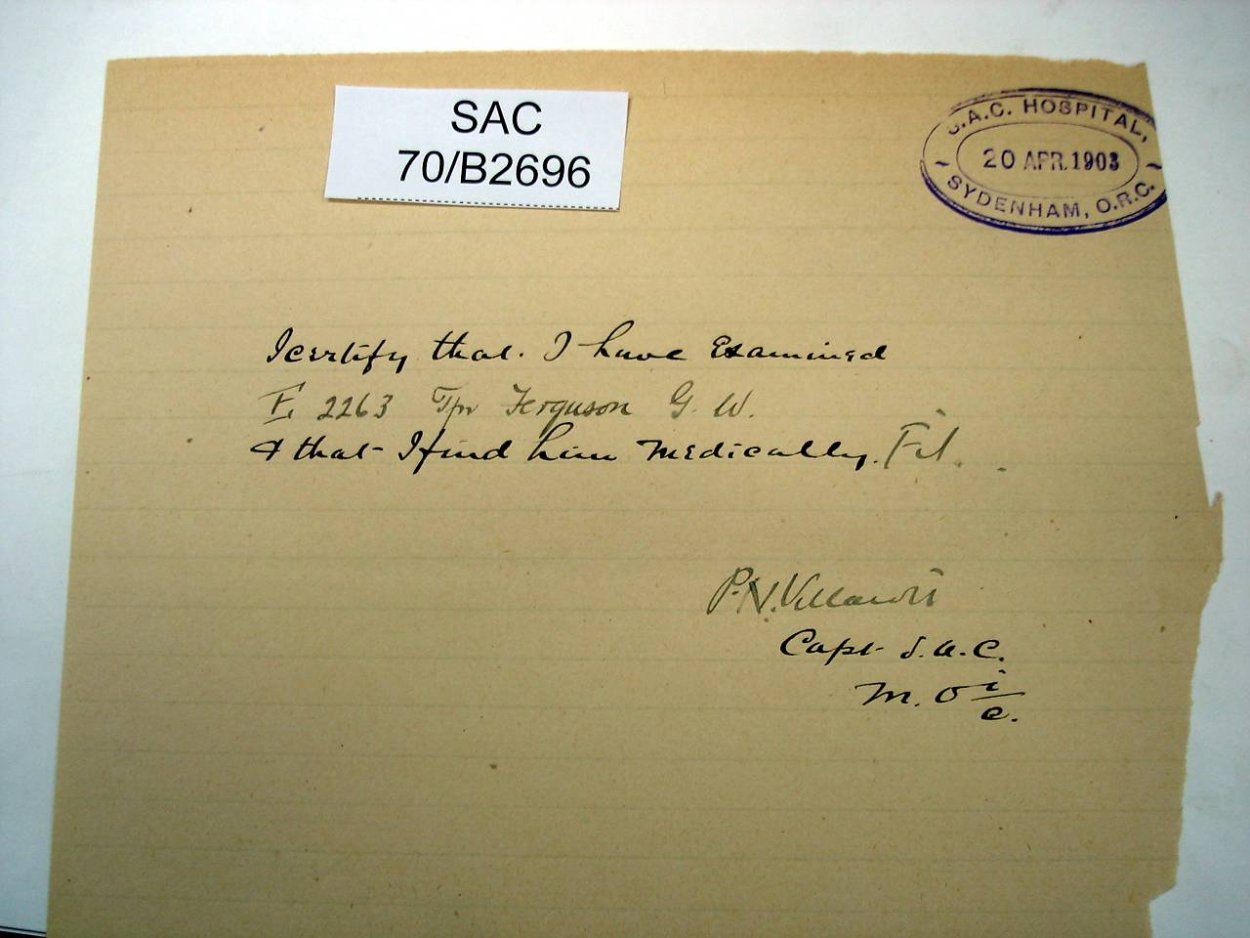 SAC
70/B2696
S.A.C. HOSPITAL,
20 APR. 1903
SYDENHAM, O.R.C.
I certify that I have Examined
E 2263 Tpr Ferguson G. W.
& that I find him medically Fit.
Capt S.A.C.
M.O i/c.